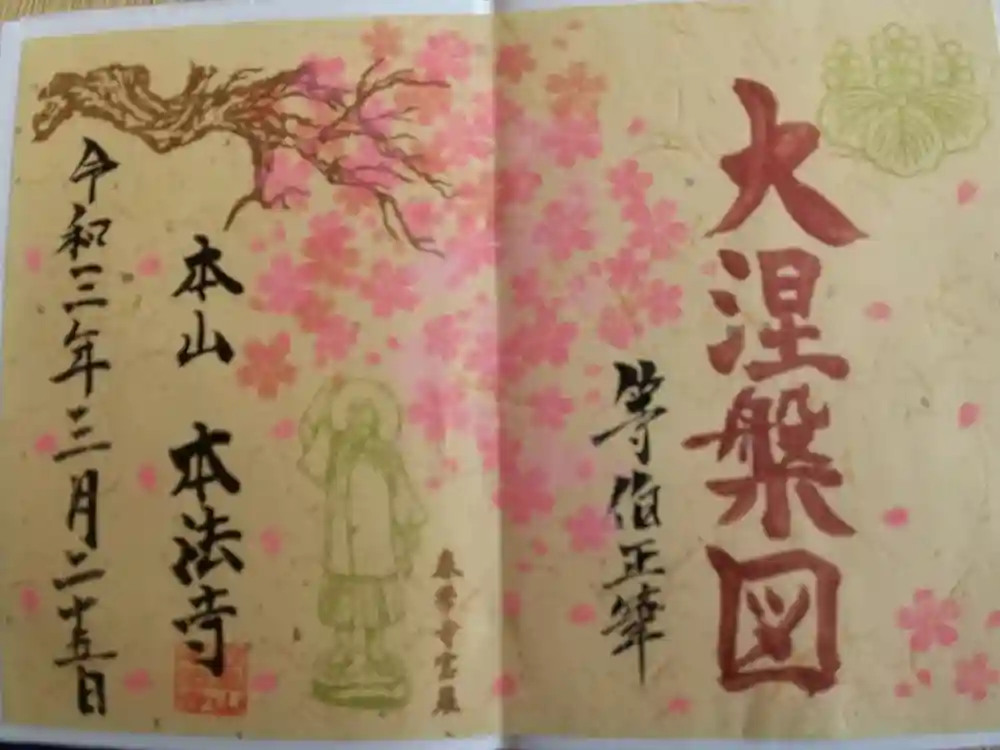 大涅槃図
等伯正筆
本山 本法寺
令和三年三月二十五日